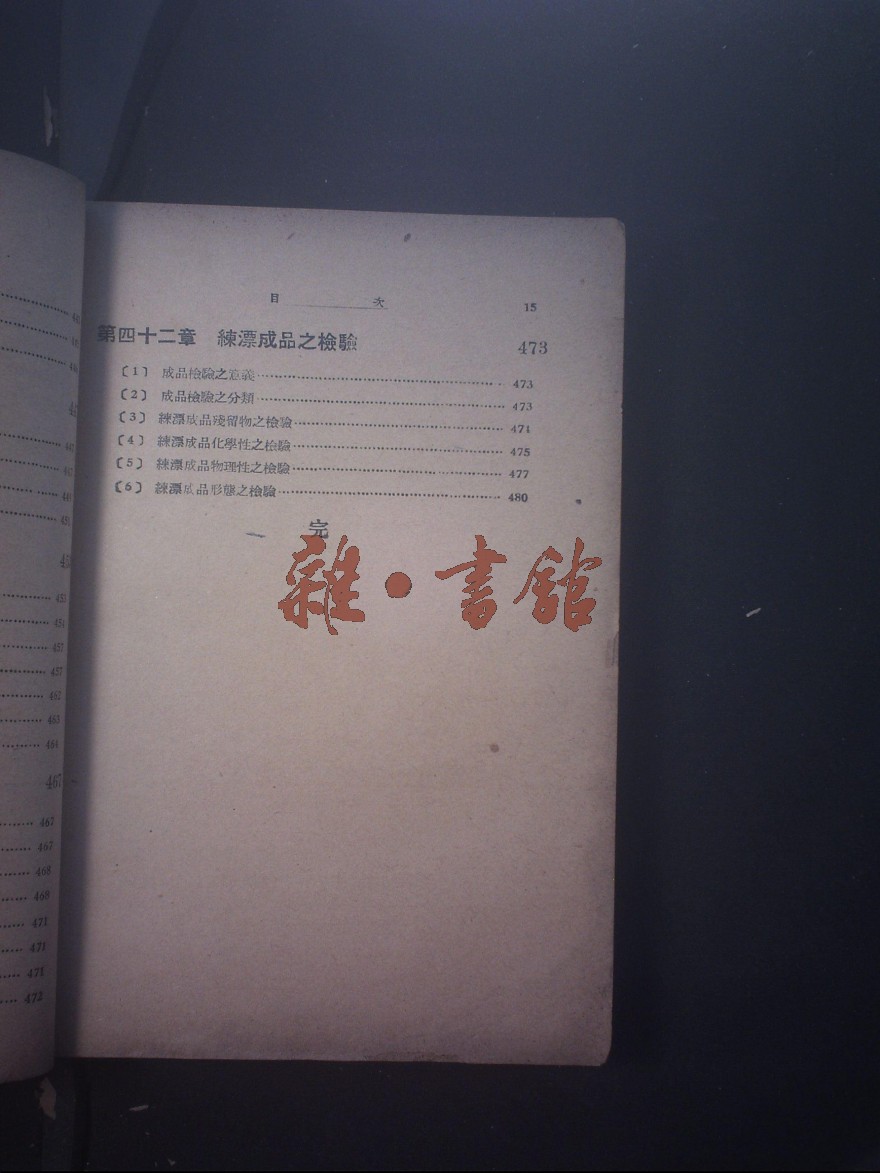 目 次 15
第四十二章 練漂成品之檢驗 473
〔1〕 成品檢驗之意義 473
〔2〕 成品檢驗之分類 473
〔3〕 練漂成品殘留物之檢驗 474
〔4〕 練漂成品化學性之檢驗 475
〔5〕 練漂成品物理性之檢驗 477
〔6〕 練漂成品形態之檢驗 480
完
雜·書館
447
447
449
451
453
454
457
457
462
463
464
467
467
467
468
468
471
471
471
472